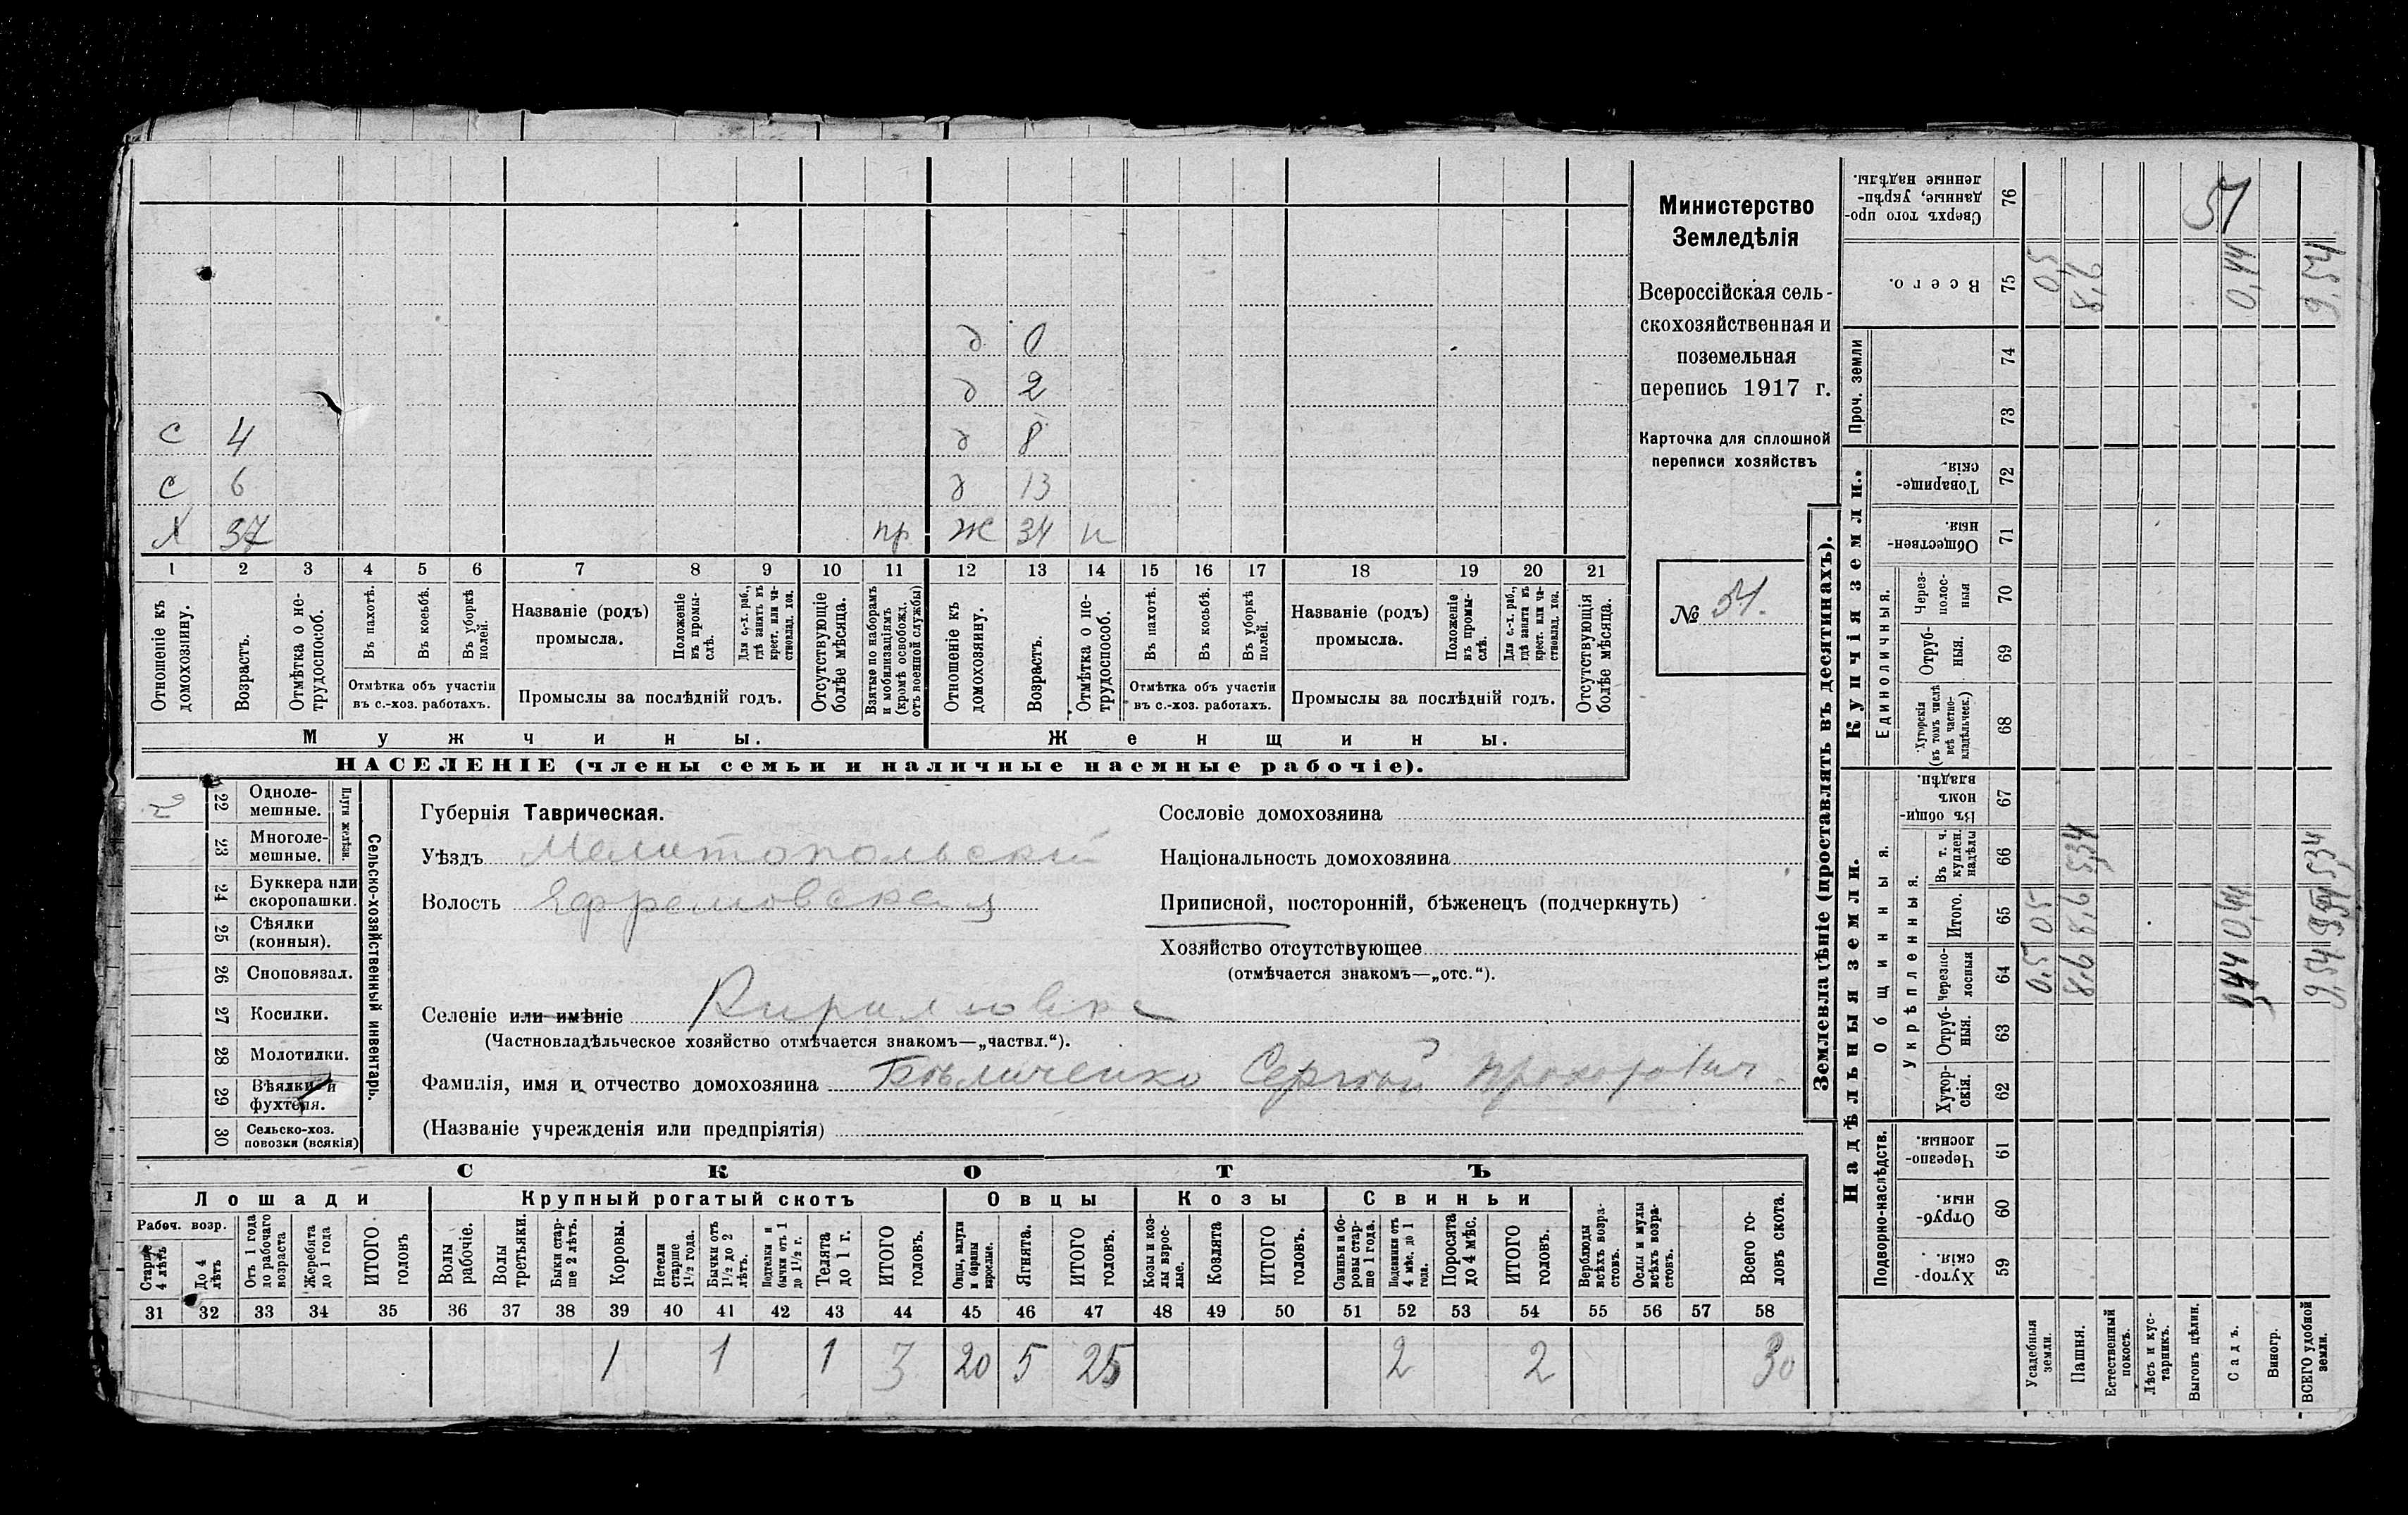 Министерство
Земледѣлія
Всероссійская сель-
скохозяйственная и
поземельная
перепись 1917 г.
Карточка для сплошной
переписи хозяйствъ
№ 51.
д 0
д 2
с 4 д 8
с 6 д 13
Х 37 пр Ж 34 п
1 2 3 4 5 6 7 8 9 10 11 12 13 14 15 16 17 18 19 20 21
Отношеніе къ домохозяину.
Возрастъ.
Отмѣтка о не-трудоспособ.
Въ пахотѣ.
Въ косьбѣ.
Въ уборкѣ полей.
Отмѣтка объ участіи
въ с.-хоз. работахъ.
Названіе (родъ)
промысла.
Положеніе въ промы-слѣ.
Для с.-х. раб., гдѣ занятъ въ крест. или ча-стновлад. хоз.
Промыслы за послѣдній годъ.
Отсутствующіе болѣе мѣсяца.
Взятые по наборамъ и мобилизаціямъ (кромѣ освобожд. отъ военной службы)
Отношеніе къ домохозяину.
Возрастъ.
Отмѣтка о не-трудоспособ.
Въ пахотѣ.
Въ косьбѣ.
Въ уборкѣ полей.
Отмѣтка объ участіи
въ с.-хоз. работахъ.
Названіе (родъ)
промысла.
Положеніе въ промы-слѣ.
Для с.-х. раб., гдѣ занята въ крест. или ча-стновлад. хоз.
Промыслы за послѣдній годъ.
Отсутствующія болѣе мѣсяца.
Мужчины. Женщины.
НАСЕЛЕНІЕ (члены семьи и наличные наемные рабочіе).
Сельско-хозяйственный инвентарь.
Плуги желѣзн.
2 22 Однолемешные.
23 Многолемешные.
24 Буккера или скоропашки.
25 Сѣялки (конныя).
26 Сноповязал.
27 Косилки.
28 Молотилки.
29 Вѣялки и фухтеля.
30 Сельско-хоз. повозки (всякія)
Губернія Таврическая.
Уѣздъ Мелитопольскій
Волость Ефремовская
Селеніе или имѣніе Кириловка
(Частновладѣльческое хозяйство отмѣчается знакомъ—„частвл.“).
Фамилія, имя и отчество домохозяина Сергѣй Прохорович
(Названіе учрежденія или предпріятія)
Сословіе домохозяина
Національность домохозяина
Приписной, посторонній, бѣженецъ (подчеркнуть)
Хозяйство отсутствующее
(отмѣчается знакомъ—„отс.“).
СКОТЪ
Лошади Крупный рогатый скотъ Овцы Козы Свиньи
Рабоч. возр.
Старше 4 лѣтъ
До 4 лѣтъ
Отъ 1 года до рабочаго возраста
Жеребята до 1 года
ИТОГО головъ
Волы рабочіе.
Волы третьяки.
Быки стар-ше 2 лѣтъ.
Коровы.
Нетели старше 1½ года.
Бычки отъ 1½ до 2 лѣтъ.
Подтелки и бычки отъ 1 до 1½ г.
Телята до 1 г.
ИТОГО головъ.
Овцы, валухи и бараны взрослые.
Ягнята.
ИТОГО головъ.
Козы и коз-лы взрос-лые.
Козлята
ИТОГО головъ.
Свиньи и бо-ровы стар-ше 1 года.
Подсвинки отъ 4 мѣс. до 1 года.
Поросята до 4 мѣс.
ИТОГО головъ.
Верблюды всѣхъ возра-стовъ.
Ослы и мулы всѣхъ возра-стовъ.
Всего го-ловъ скота.
31 32 33 34 35 36 37 38 39 40 41 42 43 44 45 46 47 48 49 50 51 52 53 54 55 56 57 58
1 1 1 3 20 5 25 2 2 30
Землевладѣніе (проставлять въ десятинахъ).
Надѣльныя земли. Купчія земли.
Подворно-наслѣдств.
Общинныя.
Укрѣпленныя.
Единоличныя.
Проч. земли
Хутор-скія. 59
Отруб-ныя. 60
Черезпо-лосныя. 61
Хутор-скія. 62
Отруб-ныя. 63
Черезпо-лосныя 64
Итого. 65
Въ т. ч. куплен. надѣлы 66
Въ общи-номъ владѣн. 67
Хуторскія (въ томъ числѣ всѣ частно-владѣльческ.) 68
Отруб-ныя. 69
Через-полос-ныя 70
Обществен-ныя. 71
Товарище-скія. 72
73
74
Всего. 75
Сверхъ того про-данные, укрѣп-ленные надѣлы. 76
Усадебныя земли. 0,5 0,5 0,5
Пашня. 8,6 8,6 5,34 8,6
Естественный покосъ.
Лѣсъ и кус-тарникъ.
Выгонъ цѣлин.
Садъ. 0,44 0,44
Виногр.
ВСЕГО удобной земли. 9,54 5,34 9,54
51